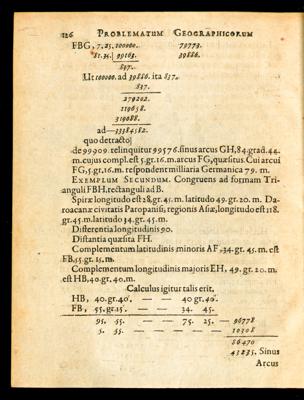 126 PROBLEMATUM GEOGRAPHICORUM
FBG, 7. 25. 100000. 79773.
81. 34. 99163. 39886.
837.
Ut 100000. ad 39886. ita 837.
837.
279202.
119658.
319088.
ad — 33384582.
quo detracto
de 99909. relinquitur 99576. sinus arcus GH, 84. grad. 44.
m. cujus compl. est 5. gr. 16. m. arcus FG, quæsitus. Cui arcui
FG, 5. gr. 16. m. respondent milliaria Germanica 79. m.
EXEMPLUM SECUNDUM. Congruens ad formam Tri-
anguli FBH. rectanguli ad B.
Spiræ longitudo est 28. gr. 45. m. latitudo 49. gr. 20. m. Da-
roacanæ civitatis Paropanisi, regionis Asiæ, longitudo est 118.
gr. 45. m. latitudo 34. gr. 45. m.
Differentia longitudinis 90.
Distantia quæsita FH.
Complementum latitudinis minoris AF, 34. gr. 45. m. est
FB, 55. gr. 15. m.
Complementum longitudinis majoris EH, 49. gr. 20. m.
est HB, 40. gr. 40. m.
Calculus igitur talis erit,
HB, 40. gr. 40'. — — 40 gr. 40'.
FB, 55. gr. 15'. — — 34. 45.
95. 55. — — 75. 25. — 96778
5. 55. — — — — 10308
86470
43235. Sinus
Arcus